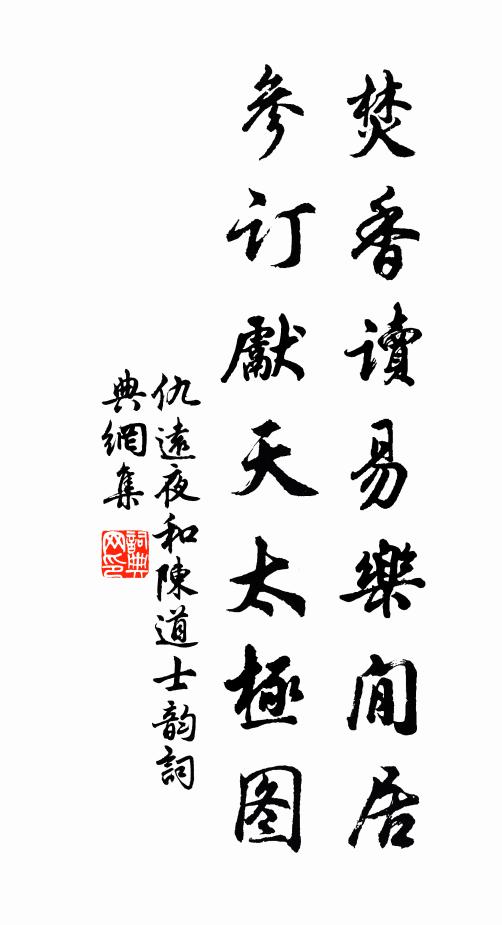 焚香讀易樂閒居
參订獻天太極图
仇遠夜和陳道士韵詞
典網集
詞典
网印